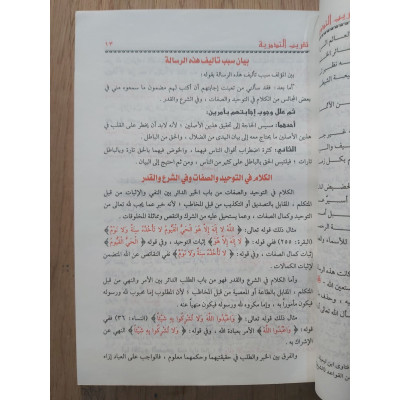 تقريب التدمرية
١٣
بيان سبب تأليف هذه الرسالة
بين المؤلف سبب تأليف هذه الرسالة بقوله:
"أما بعد : فقد سألني من تعينت إجابتهم أن أكتب لهم مضمون ما سمعوه مني في
بعض المجالس من الكلام في التوحيد والصفات ، وفي الشرع والقدر.
ثم علل وجوب إجابتهم بأمرين:
أحدهما: مسيس الحاجة إلى تحقيق هذين الأصلين ؛ لأنه لابد أن يخطر على القلب في
هذين الأصلين ما يحتاج معه إلى بيان الهدى من الضلال ، والحق من الباطل.
الثاني: كثرة اضطراب أقوال الناس فيهما ، والخوض فيهما بالحق تارة وبالباطل
تارات ؛ فيلتبس الحق بالباطل على كثير من الناس ، ومن ثم احتيج إلى البيان.
الكلام في التوحيد والصفات وفي الشرع والقدر
الكلام في التوحيد والصفات من باب الخبر الدائر بين النفي والإثبات من قبل
المتكلم ، المقابل بالتصديق أو التكذيب من قبل المخاطب ؛ لأنه خبر عما يجب لله تعالى من
التوحيد وكمال الصفات ، وعما يستحيل عليه من الشرك والنقص ومماثلة المخلوقات.
مثال ذلك: قوله تعالى: ﴿ اللَّهُ لَا إِلَٰهَ إِلَّا هُوَ الْحَيُّ الْقَيُّومُ لَا تَأْخُذُهُ سِنَةٌ وَلَا نَوْمٌ ﴾
(البقرة: ٢٥٥) ففي قوله: ﴿ لَا إِلَٰهَ إِلَّا هُوَ ﴾ إثبات التوحيد ، وفي قوله: ﴿ الْحَيُّ الْقَيُّومُ ﴾
إثبات كمال الصفات ، وفي قوله: ﴿ لَا تَأْخُذُهُ سِنَةٌ وَلَا نَوْمٌ ﴾ نفي النقائص عن الله
المتضمن لإثبات الكمالات.
وأما الكلام في الشرع والقدر فهو من باب الطلب الدائر بين الأمر والنهي من قبل
المتكلم ، المقابل بالطاعة أو المعصية من قبل المخاطب ؛ لأن المطلوب إما محبوب لله ورسوله
فيكون مأموراً به ، وإما مكروه لله ورسوله فيكون منهياً عنه.
مثال ذلك قوله تعالى: ﴿ وَاعْبُدُوا اللَّهَ وَلَا تُشْرِكُوا بِهِ شَيْئًا ﴾ (النساء: ٣٦) ففي
قوله: ﴿ وَاعْبُدُوا اللَّهَ ﴾ الأمر بعبادة الله ، وفي قوله: ﴿ وَلَا تُشْرِكُوا بِهِ شَيْئًا ﴾ النهي عن
الإشراك به.
والفرق بين الخبر والطلب في حقيقتيهما وحكمهما معلوم ، فالواجب على العباد إزاء